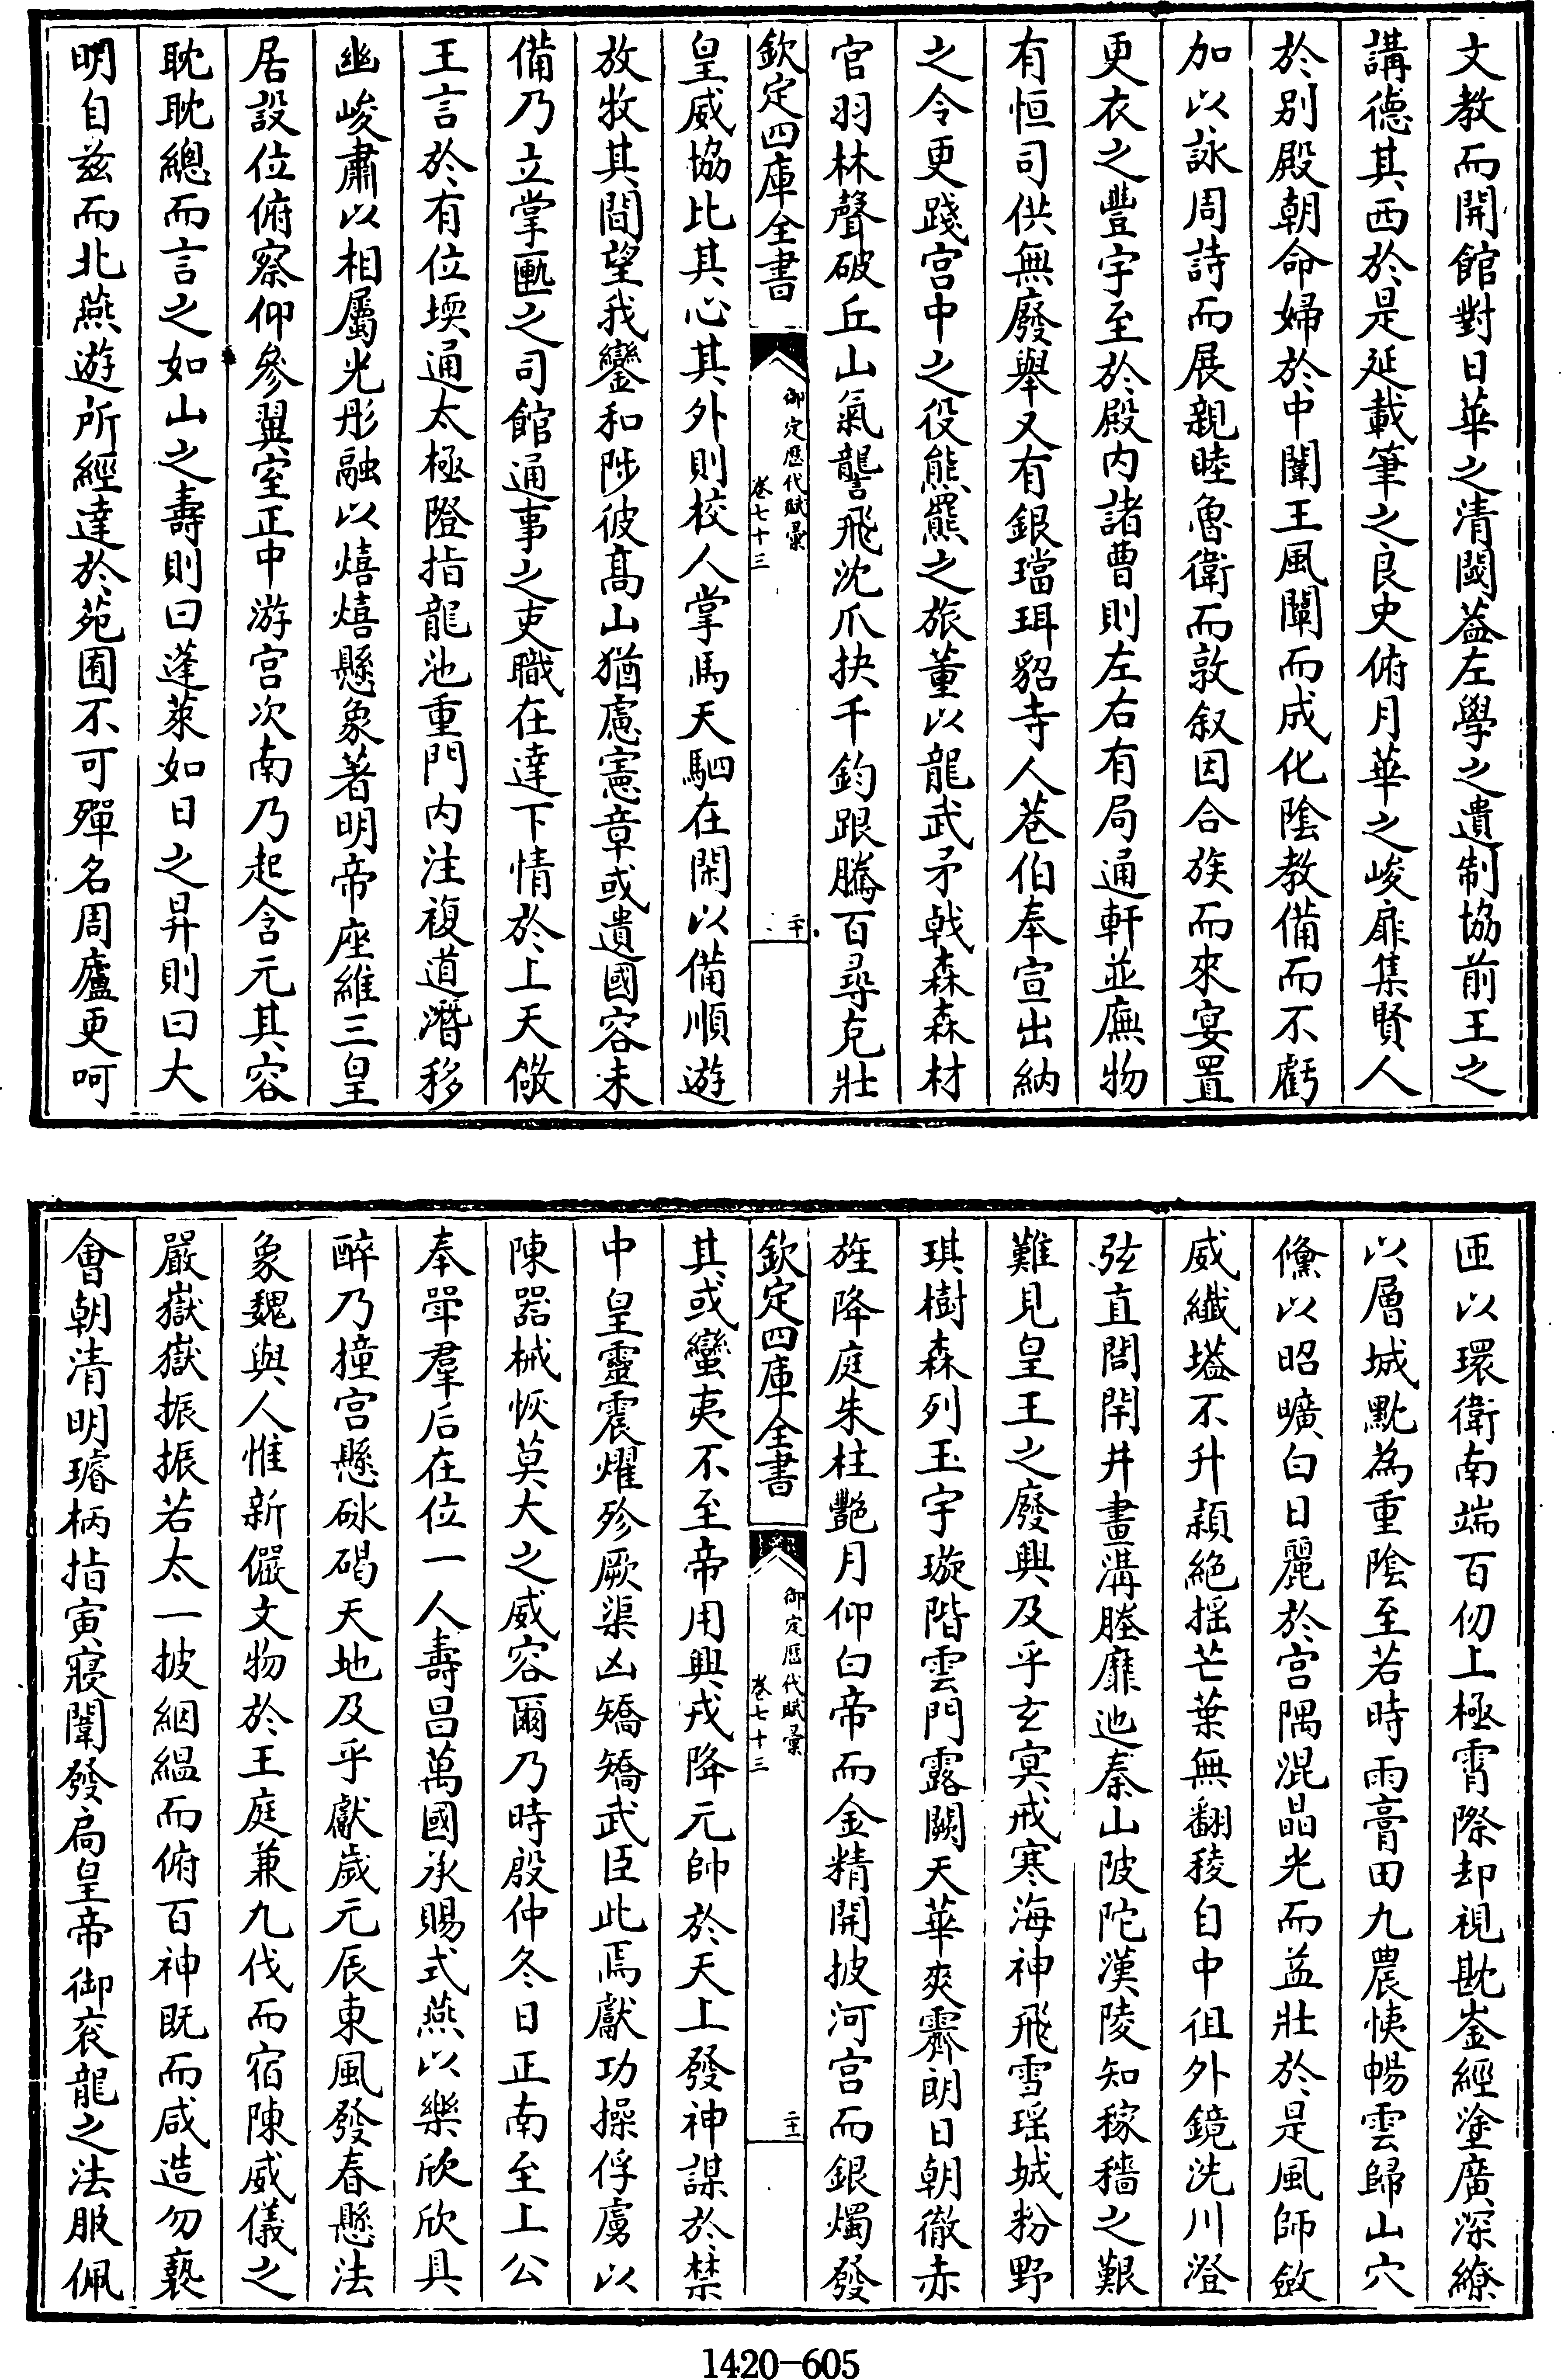 文教而開館對日華之清閟蓋左學之遺制協前王之
講德其西於是延載筆之良史俯月華之峻扉集賢人
於別殿朝命婦於中闈王風闡而成化陰教備而不虧
加以詠周詩而展親睦魯衛而敦叙因合族而來宴置
更衣之豐宇至於殿内諸曹則左右有局通軒並廡物
有恒司供無廢舉又有銀璫珥貂寺人巷伯奉宣出納
之令更踐宮中之役熊羆之旅董以龍武矛戟森森材
官羽林聲破丘山氣讋飛沈爪抉千鈞踉騰百尋克壯
欽定四庫全書
御定歷代賦彙
卷七十三
二十
皇威協比其心其外則校人掌馬天駟在閑以備順遊
放牧其閒望我鑾和陟彼高山猶慮憲章或遺國容未
備乃立掌匭之司館通事之吏職在達下情於上天儆
王言於有位堧通太極隥指龍池重門内注複道潛移
幽峻肅以相屬光彤融以熺熺懸象著明帝座維三皇
居設位俯察仰參翼室正中游宮次南乃起含元其容
耽耽總而言之如山之壽則曰蓬萊如日之昇則曰大
明自兹而北燕遊所經達於苑囿不可殫名周廬更呵
匝以環衛南端百仞上極霄際却視戡崟經塗廣深繚
以層城黕為重陰至若時雨膏田九農悏暢雲歸山穴
儵以昭曠白日麗於宮隅混晶光而益壯於是風師斂
威纖壒不升潁絶揺芒葉無翻稜自中徂外鏡洗川澄
弦直閭閈井畫溝塍靡迆秦山陂陀漢陵知稼穡之艱
難見皇王之廢興及乎玄冥戒寒海神飛雪瑶城粉野
琪樹森列玉宇璇階雲門露闕天華爽霽朗日朝徹赤
旌降庭朱柱艷月仰白帝而金精開披河宮而銀燭發
欽定四庫全書
御定歷代賦彙
卷七十三
二十一
其或蠻夷不至帝用興戎降元帥於天上發神謀於禁
中皇靈震燿殄厥渠凶矯矯武臣此焉獻功操俘虜以
陳器械恢莫大之威容爾乃時殷仲冬日正南至上公
奉斝羣后在位一人壽昌萬國承賜式燕以樂欣欣具
醉乃撞宮懸硡磕天地及乎獻歲元辰東風發春懸法
象魏與人惟新儼文物於王庭兼九伐而宿陳威儀之
嚴嶽嶽振振若太一披絪緼而俯百神既而咸造勿褻
會朝清明瓊柄指寅寢闈發扃皇帝御袞龍之法服佩
1420-605